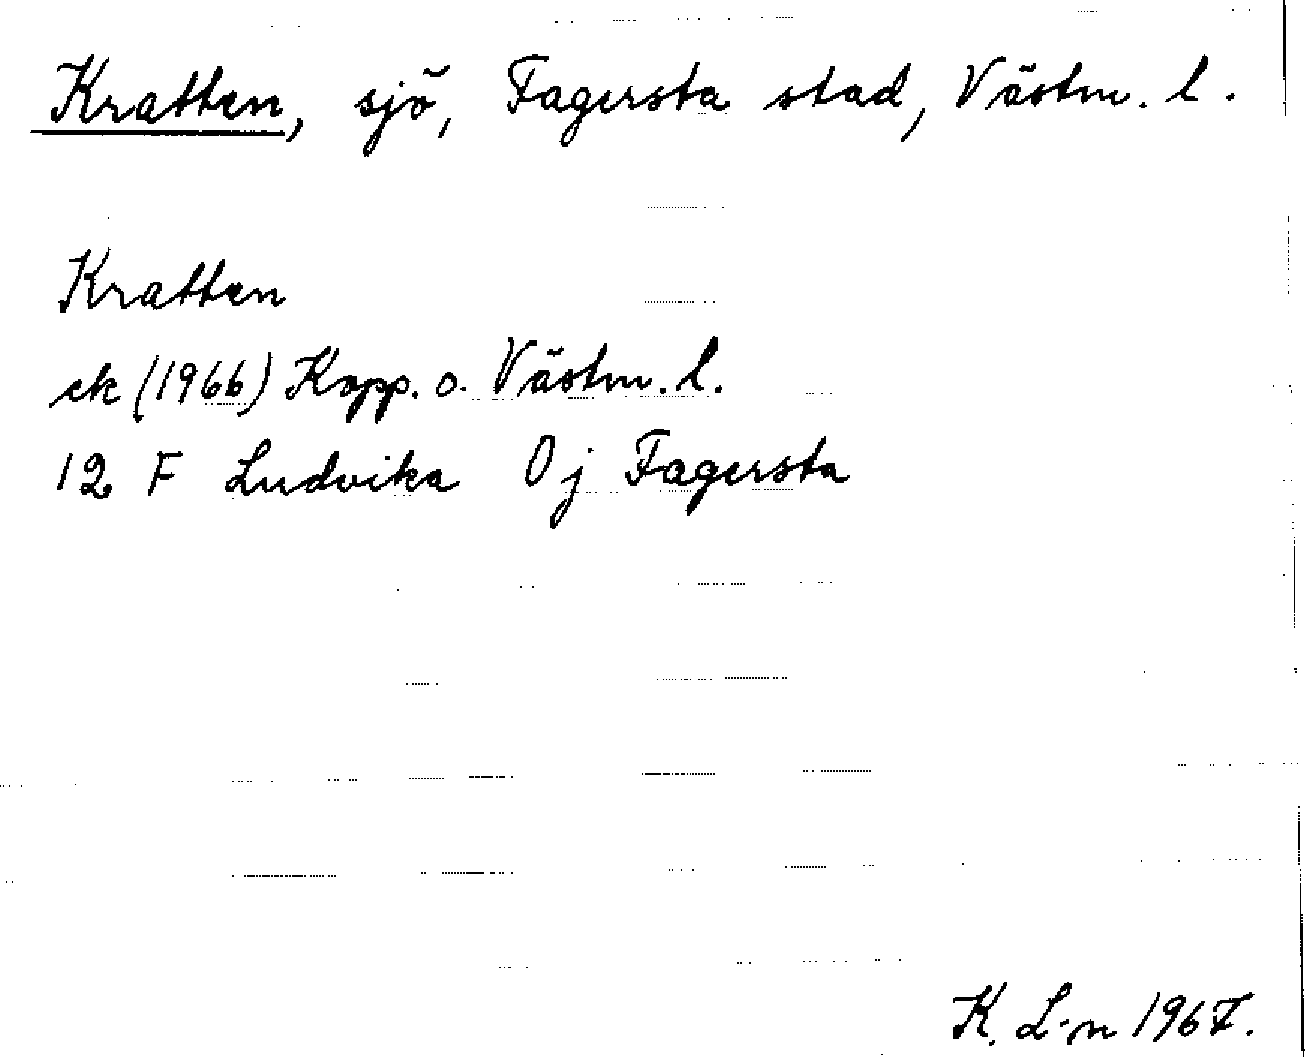 Kratten, sjö, Fagersta stad, Västm. l.
Kratten
ek (1966) Kopp. o. Västm. l.
12 F Ludvika 0 j Fagersta
K. L-n 1967.